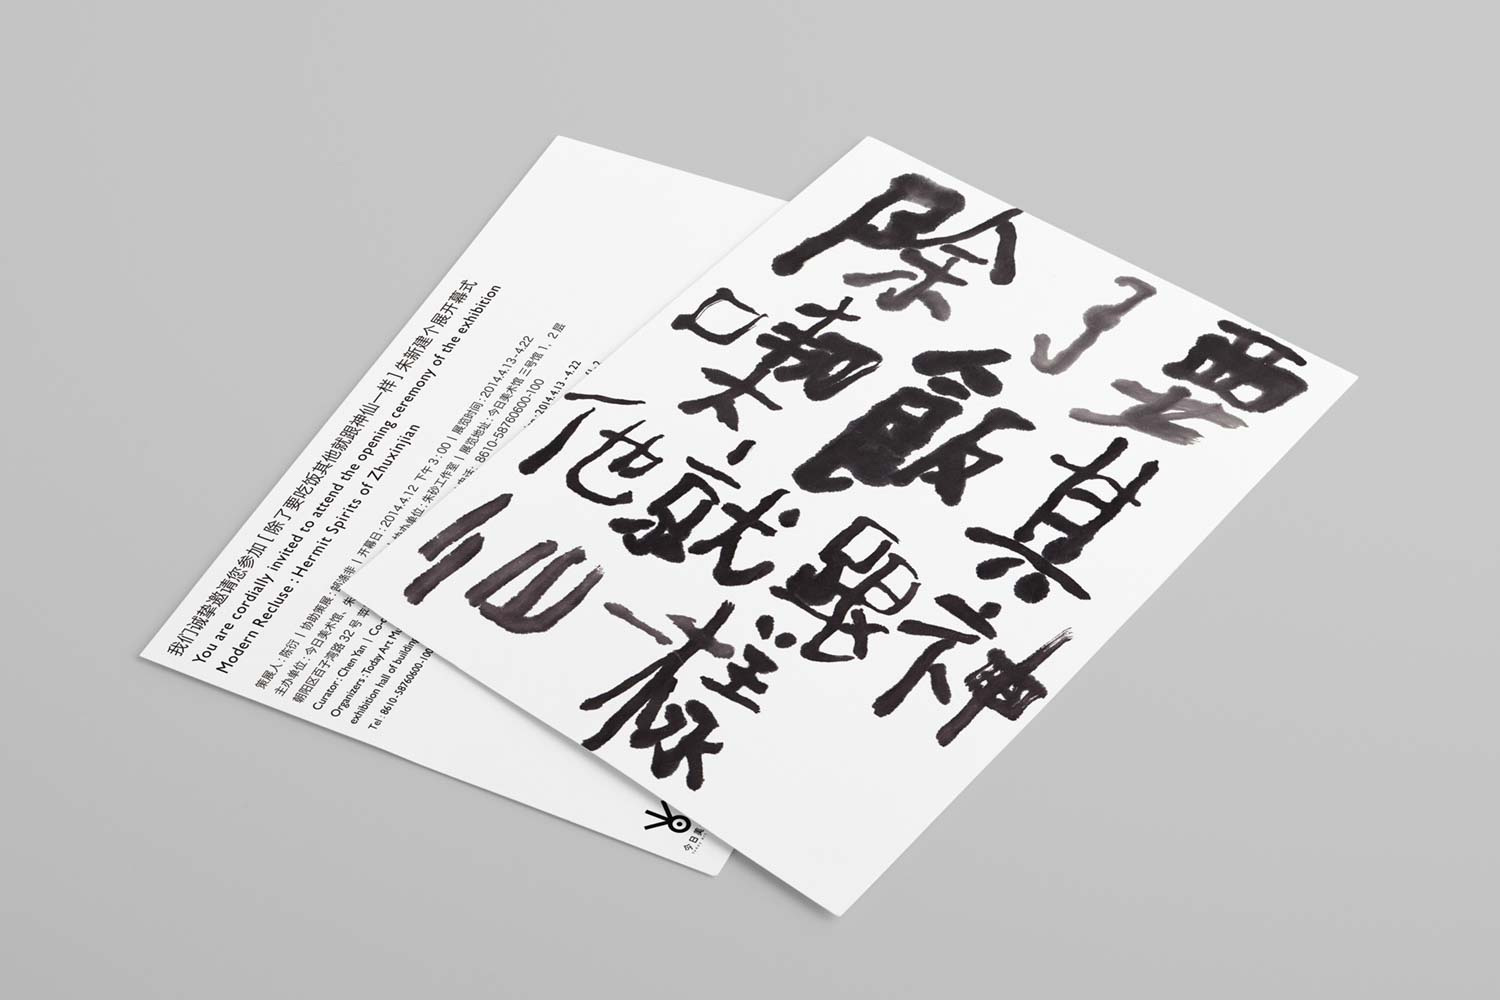 我们诚挚邀请您参加 [ 除了要吃饭其他就跟神仙一样 ] 朱新建个展开幕式
You are cordially invited to attend the opening ceremony of the exhibition
Modern Recluse : Hermit Spirits of Zhuxinjian
策展人 : 陈衍 | 协助策展 : 涤非 | 开幕日 : 2014.4.12 下午 3 : 00 | 展览时间 : 2014.4.13-4.22
主办单位 : 今日美术馆、朱 单位 : 朱砂工作室 | 展览地址 : 今日美术馆 三号馆 1，2 层
朝阳区百子湾路 32 号 电话 : 8610-58760600-100
Curator : Chen Yan | 2014.4.13-4.22
Organizers : Today Art
exhibition hall of building
Tel : 8610-58760600-100
今日美
除了要
喫飯其
他就跟神
仙一樣